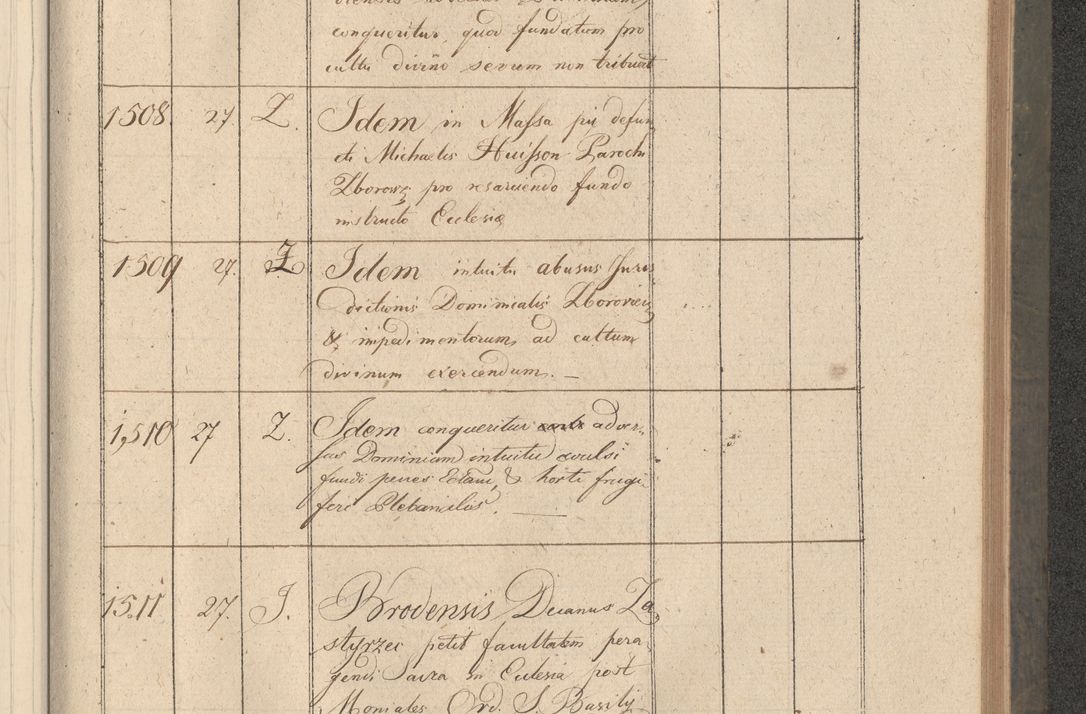 conqueritur, quod fundatum pro
cultu divino sevum non tribuat
1508. 27 Z. Idem in Massa pii defun
cti Michaelis Huisson Parochi
Zborow: pro resarciendo fundo
instructo Ecclesiæ
1509 27. Z Idem intuitu abusus Juris
dictionis Dominicalis Zborovien
& impedimentorum, ad cultum
divinum exercendum. —
1,510 27 Z. Idem conqueritur adver„
sus Dominium intuitu avulsi
fundi penes Eccl̃am, & horti frugi
feri Plebanalis. —
1511 27. J. Brodensis Decanus Za
styrzec petit facultatem pera
gendi Sacra in Ecclesia post
Moniales Ord. S. Basilij